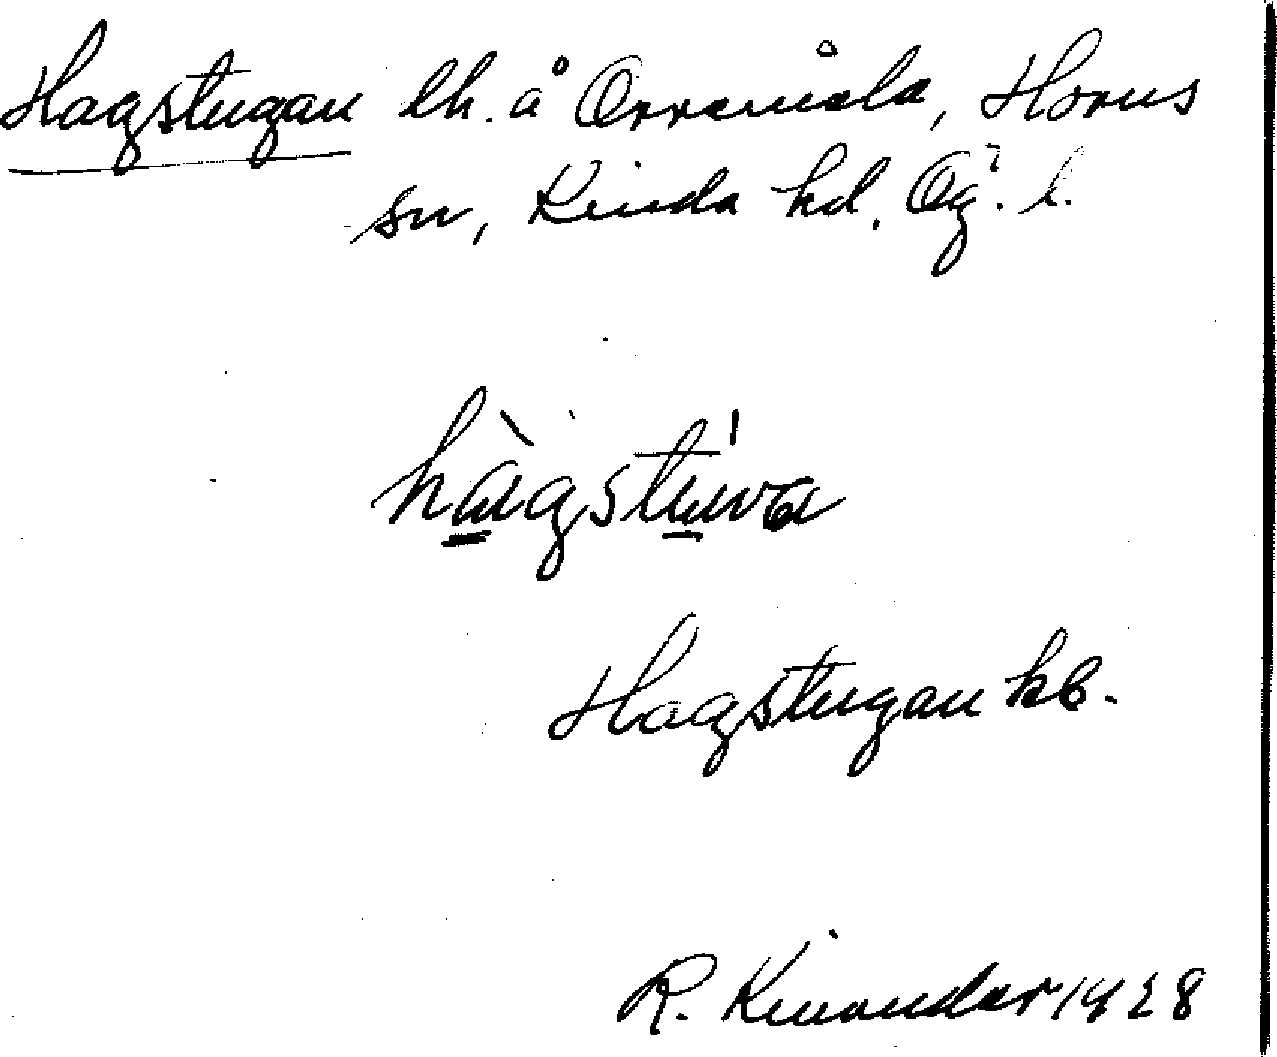 Hagstugan lh. å Orremåla, Horns
sn, Kinda hd. Ög. l.
hàgstúva
Hagstugan kb.
R. Kinander 1928